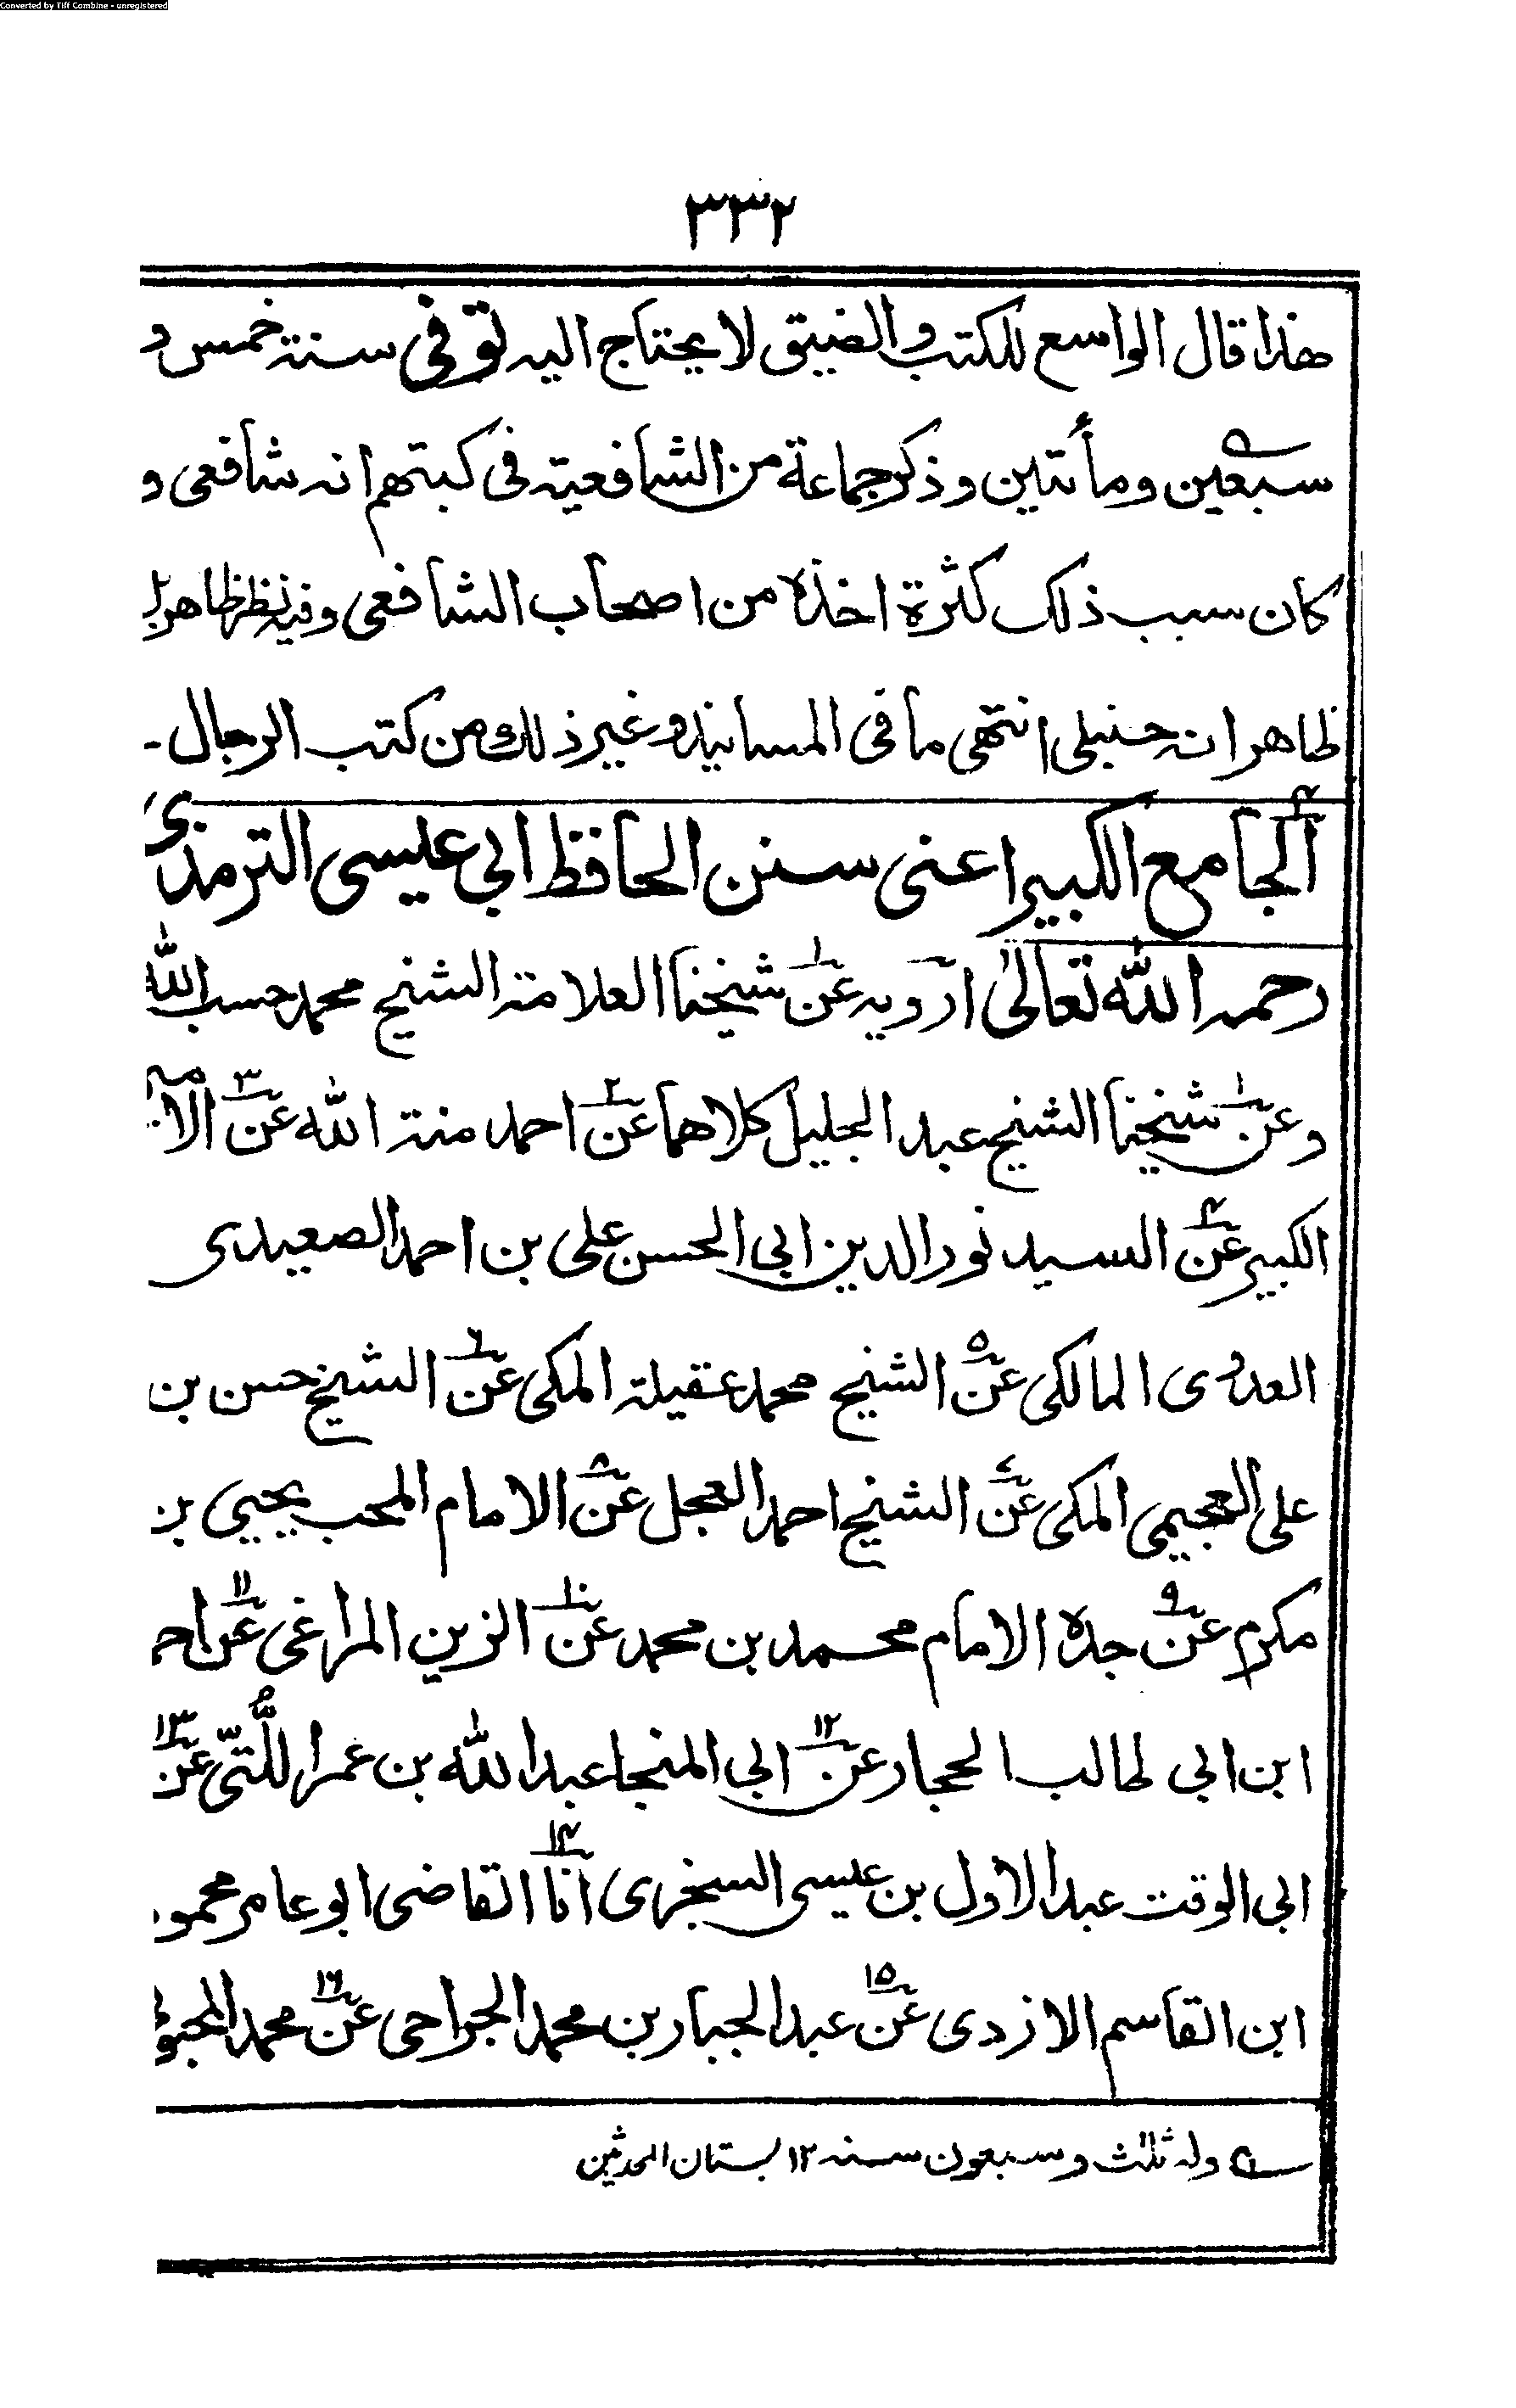 Converted by Tiff Combine - unregistered
٣٣٢
هذا قال الواسع للكتب والضيق لا يحتاج اليه توفى سنة خمس و
سبعين ومأتين وذكر جماعة من الشافعية فى كتبهم انه شافعى و
كان سبب ذلك كثرة اخذه من اصحاب الشافعى وفيه نظر ظاهر بل
ظاهر انه حنبلى انتهى ما فى المسانيد وغير ذلك من كتب الرجال -
الجامع الكبير اعنى سنن الحافظ ابي عيسى الترمذى
رحمه الله تعالى ارويه عن ١ شيخنا العلامة الشيخ محمد حسب الله
وعن ١ شيخنا الشيخ عبد الجليل كلاهما عن ٢ احمد منة الله عن ٣ الامير
الكبير عن ٤ السيد نور الدين ابي الحسن على بن احمد الصعيدى
العدوى المالكى عن ٥ الشيخ محمد عقيلة المكى عن ٦ الشيخ حسن بن
على العجيمى المكى عن ٧ الشيخ احمد العجل عن ٨ الامام المحب يحيى بن
مكرم عن ٩ جده الامام محمد بن محمد عن ١٠ الزين المراغى عن ١١
ابن ابي طالب الحجار عن ١٢ ابي المنجا عبد الله بن عمر اللُّتىّ عن ١٣
ابي الوقت عبد الاول بن عيسى السنجرى انا ١٤ القاضى ابو عامر محمود
ابن القاسم الازدى عن ١٥ عبد الجبار بن محمد الجراحى عن ١٦ محمد
وله ثلث وسبعون سنه ١٢ بستان المحدثين